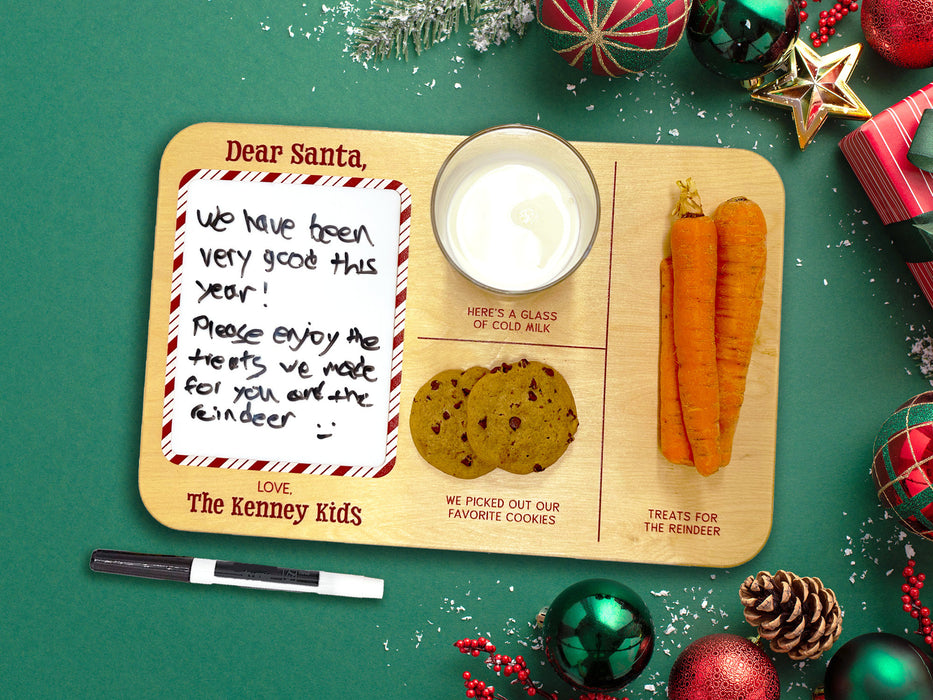 Dear Santa,
We have been
very good this
year!
Please enjoy the
treats we made
for you and the
reindeer :)
LOVE,
The Kenney Kids
HERE'S A GLASS
OF COLD MILK
WE PICKED OUT OUR
FAVORITE COOKIES
TREATS FOR
THE REINDEER